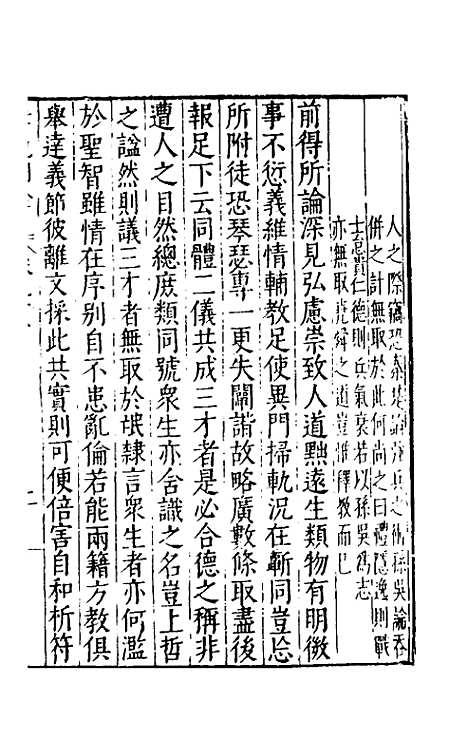 人之際竊恐秦楚論強兵之術孫吳論吞
併之計無取於此何尚之曰禮隱逸則戰
士怠貴仁德則兵氣衰若以孫吳為志
亦無取堯舜之道豈惟釋教而已
前得所論深見弘慮崇致人道黜遠生類物有明徵
事不愆義維情輔教足使異門掃軌況在蘄同豈忘
所附徒恐琴瑟專一更失闡諧故略廣數條取盡後
報足下云同體二儀共成三才者是必合德之稱非
遭人之目然總庶類同號衆生亦含識之名豈上哲
之諡然則議三才者無取於氓隸言衆生者亦何濫
於聖智雖情在序别自不患亂倫若能兩籍方教俱
舉達義節彼離文採此共實則可便倍害自和析符